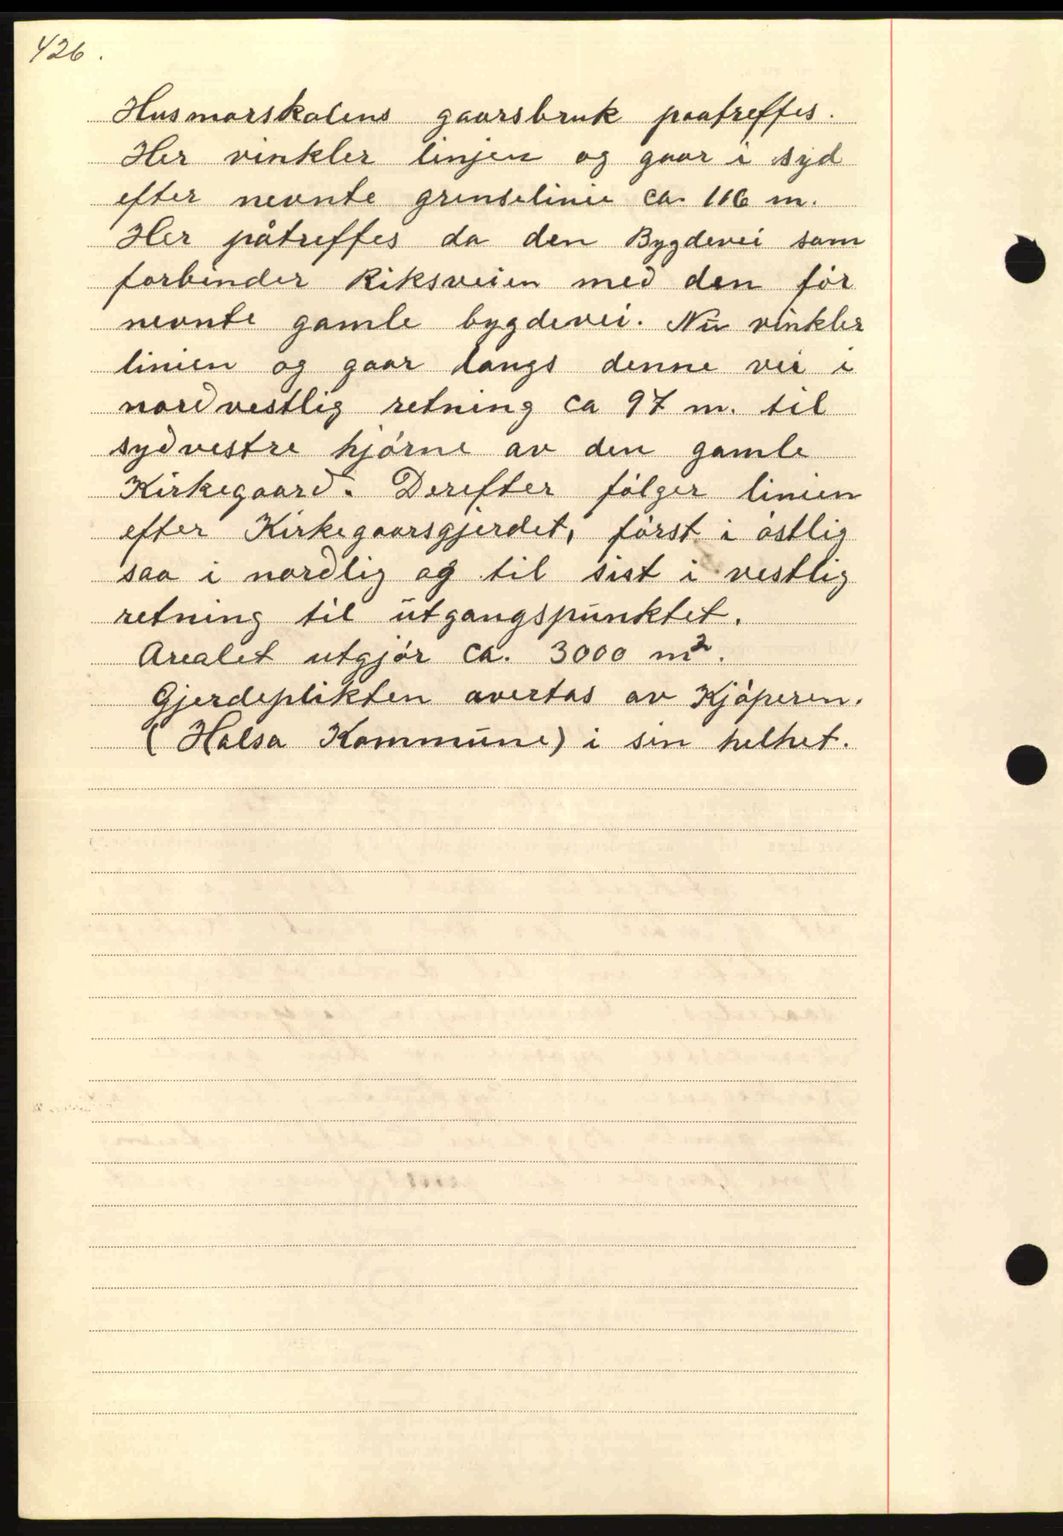 426.
Husmorskolens gaarsbruk paatreffes.
Her vinkler linjen og gaar i syd
efter nevnte grenselinie ca. 116 m.
Her påtreffes da den Bygdevei som
forbinder Riksveien med den før
nevnte gamle bygdevei. Nu vinkler
linien og gaar langs denne vei i
nordvestlig retning ca 97 m. til
sydvestre hjørne av den gamle
Kirkegaard. Derefter følger linien
efter Kirkegaarsgjerdet, først i østlig
saa i nordlig og til sist i vestlig
retning til utgangspunktet.
Arealet utgjør ca. 3000 m².
Gjerdeplikten overtas av Kjøperen.
(Halsa Kommune) i sin helhet.